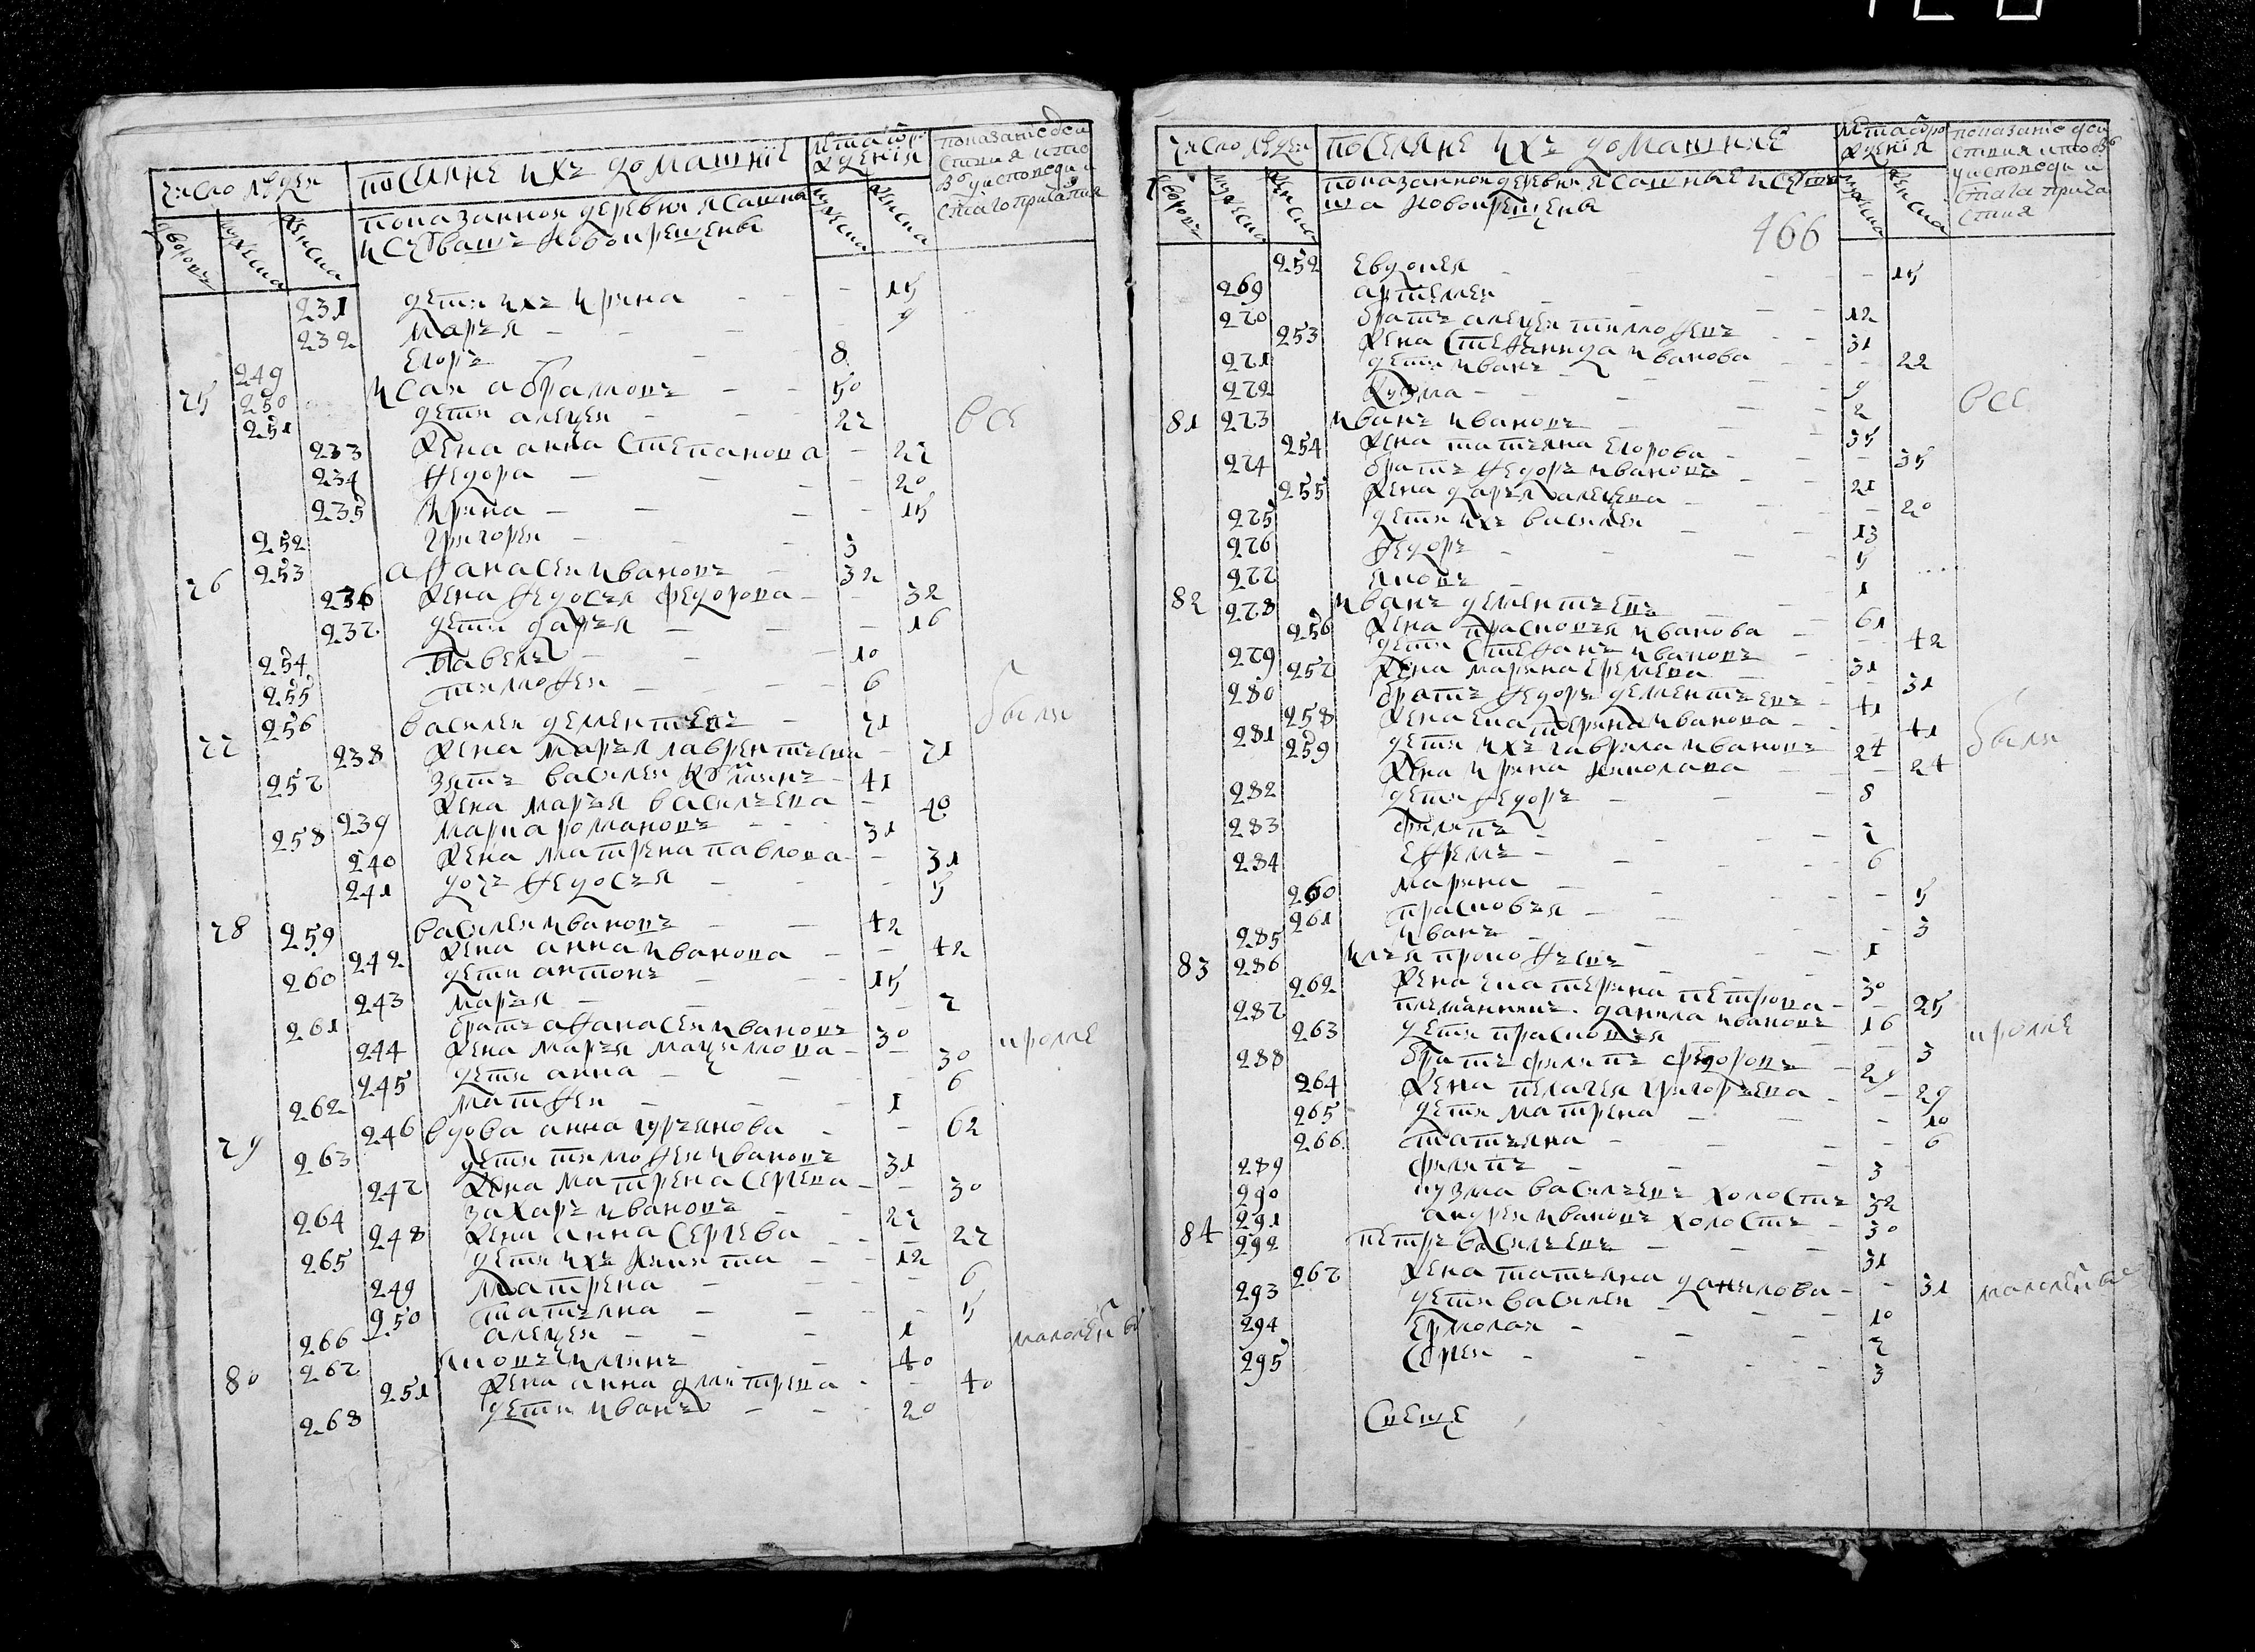 число людей
поселяне ихъ домашние
лѣта от рождения
показание
дворовъ
мужеска
женска
показанной деревни ясашные
новокрещены
мужеска
женска
231 дети ихъ Ирина - - - 15
232 Марья - - - 9
249 Егоръ - - 8
75 250 Исай Абрамовъ - - 50
251 дети Алексеи - - 27
233 жена Анна Степанова - 27
234 Федора - - - 20
235 Ирина - - - 15
252 Григореи - - 3
76 253 Афанасеи Ивановъ - 32
236 жена Федосья Федорова - - 32
237 дети Дарья - - - 16
254 Павелъ - - - 10
255 Тимофеи - - - 6
77 256 Василеи Дементьевъ - 71
238 жена Марья Лаврентьева - 71
257 зять Василеи - 41
239 жена Марья Васильева - 40
258 Марка Романовъ - - 31
240 жена Матрена Павлова - - 31
241 дочь Федосья - - - 5
78 259 Василеи Ивановъ - - 42
242 жена Анна Иванова - - 42
260 дети Антонъ - - - 15
243 Марья - - - 7
261 братъ Афанасеи Ивановъ 30
244 жена Марья Максимова - - 30
245 дети Анна - - - 6
262 Матфеи - - - 1
79 246 вдова Анна Гурьянова - - 62
263 дети Тимофеи Ивановъ 31
247 жена Матрена Сергева - - 30
264 Захаръ Ивановъ - - 27
248 жена Анна Сергева - - 27
265 дети ихъ Никита - - 12
249 Матрена - - - 6
250 Татьяна - - - 5
266 Алексеи - - - 1
80 267 Яковъ Ильинъ - - 40
251 жена Анна Дмитрева - - 40
268 дети Иванъ - - - 20
все
были
кроме
малолет
число людей
поселяне ихъ домашние
лѣта от рождения
показание
дворовъ
мужеска
женска
показанной деревни ясашные
новокрещены
мужеска
женска
466
252 Евдокея - - - 15
269 Артемеи - - - 12
270 братъ Алексеи Тимофевъ - - 31
253 жена Степанида Иванова - - 22
271 дети Иванъ - - - 9
272 Кузма - - - 2
81 273 Иванъ Ивановъ - - 35
254 жена Татьяна Егорова - - 35
274 братъ Федоръ Ивановъ - 21
255 жена Дарья Алексева - - 20
275 дети ихъ Василеи - - 13
276 Федоръ - - - 5
277 Яковъ - - - 1
82 278 Иванъ Дементьевъ - 61
256 жена Прасковья Иванова - - 42
279 дети Степанъ Ивановъ - 31
257 жена Марина Еремеева - - 31
280 братъ Федоръ Дементьевъ - 41
258 жена Екатерина Иванова - - 41
281 дети ихъ Гаврила Ивановъ 24
259 жена Ирина Николаева - - 24
282 дети Федоръ - - 8
283 Филипъ - - - 7
284 Ефремъ - - - 6
260 Марина - - - 5
261 Прасковья - - - 3
285 Иванъ - - - 1
83 286 Илья Прокофьевъ - - 30
262 жена Екатерина Петрова - - 25
287 племянникъ Данила Ивановъ 16
263 дети Прасковья - - 3
288 братъ Филипъ Федоровъ - 29
264 жена Пелагея Григорьева - - 29
265 дети Матрена - - - 10
266 Татьяна - - - 6
289 Филипъ - - - 3
290 Кузма Васильевъ холостъ 32
291 Андреи Ивановъ холостъ - 30
84 292 Петръ Васильевъ - - - 31
267 жена Татьяна Данилова - - 31
293 дети Василеи - - - 10
294 Ермолаи - - - 7
295 Сергеи - - - 3
все
были
кроме
малолет